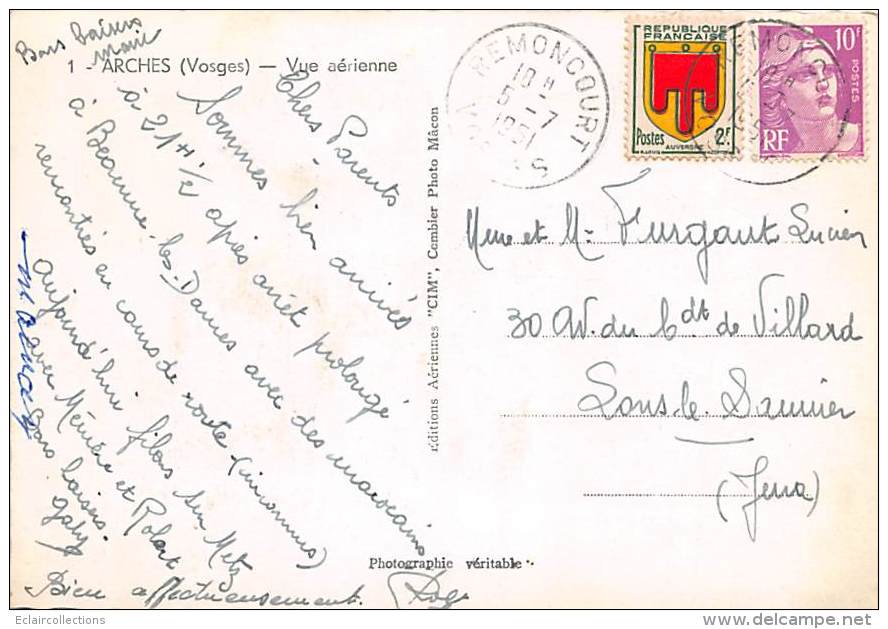 Bons Baisers
1 - ARCHES (Vosges) — Vue aérienne
Chers Parents
Sommes bien arrivés
à 21 H 1/2 après arrêt prolongé
à Beaume-les-Dames avec des marocains
remontrés en cours de route (inconnus)
aujourd'hui filons sur Metz
avec Mémère et Robert
Bons baisers.
Gaby
Bien affectueusement.
Editions Aériennes "CIM", Combier Photo Mâcon
Photographie véritable
REMONCOURT
10 H
5 - 7
1951
VOSGES
REPUBLIQUE
FRANÇAISE
Postes
2F
AUVERGNE
10F
POSTES
RF
Mme et Mr Furgaut Lucien
30 Av. du Cdt de Villard
Lons-le-Saunier
(Jura)
Eclaircollections
delcampe.net